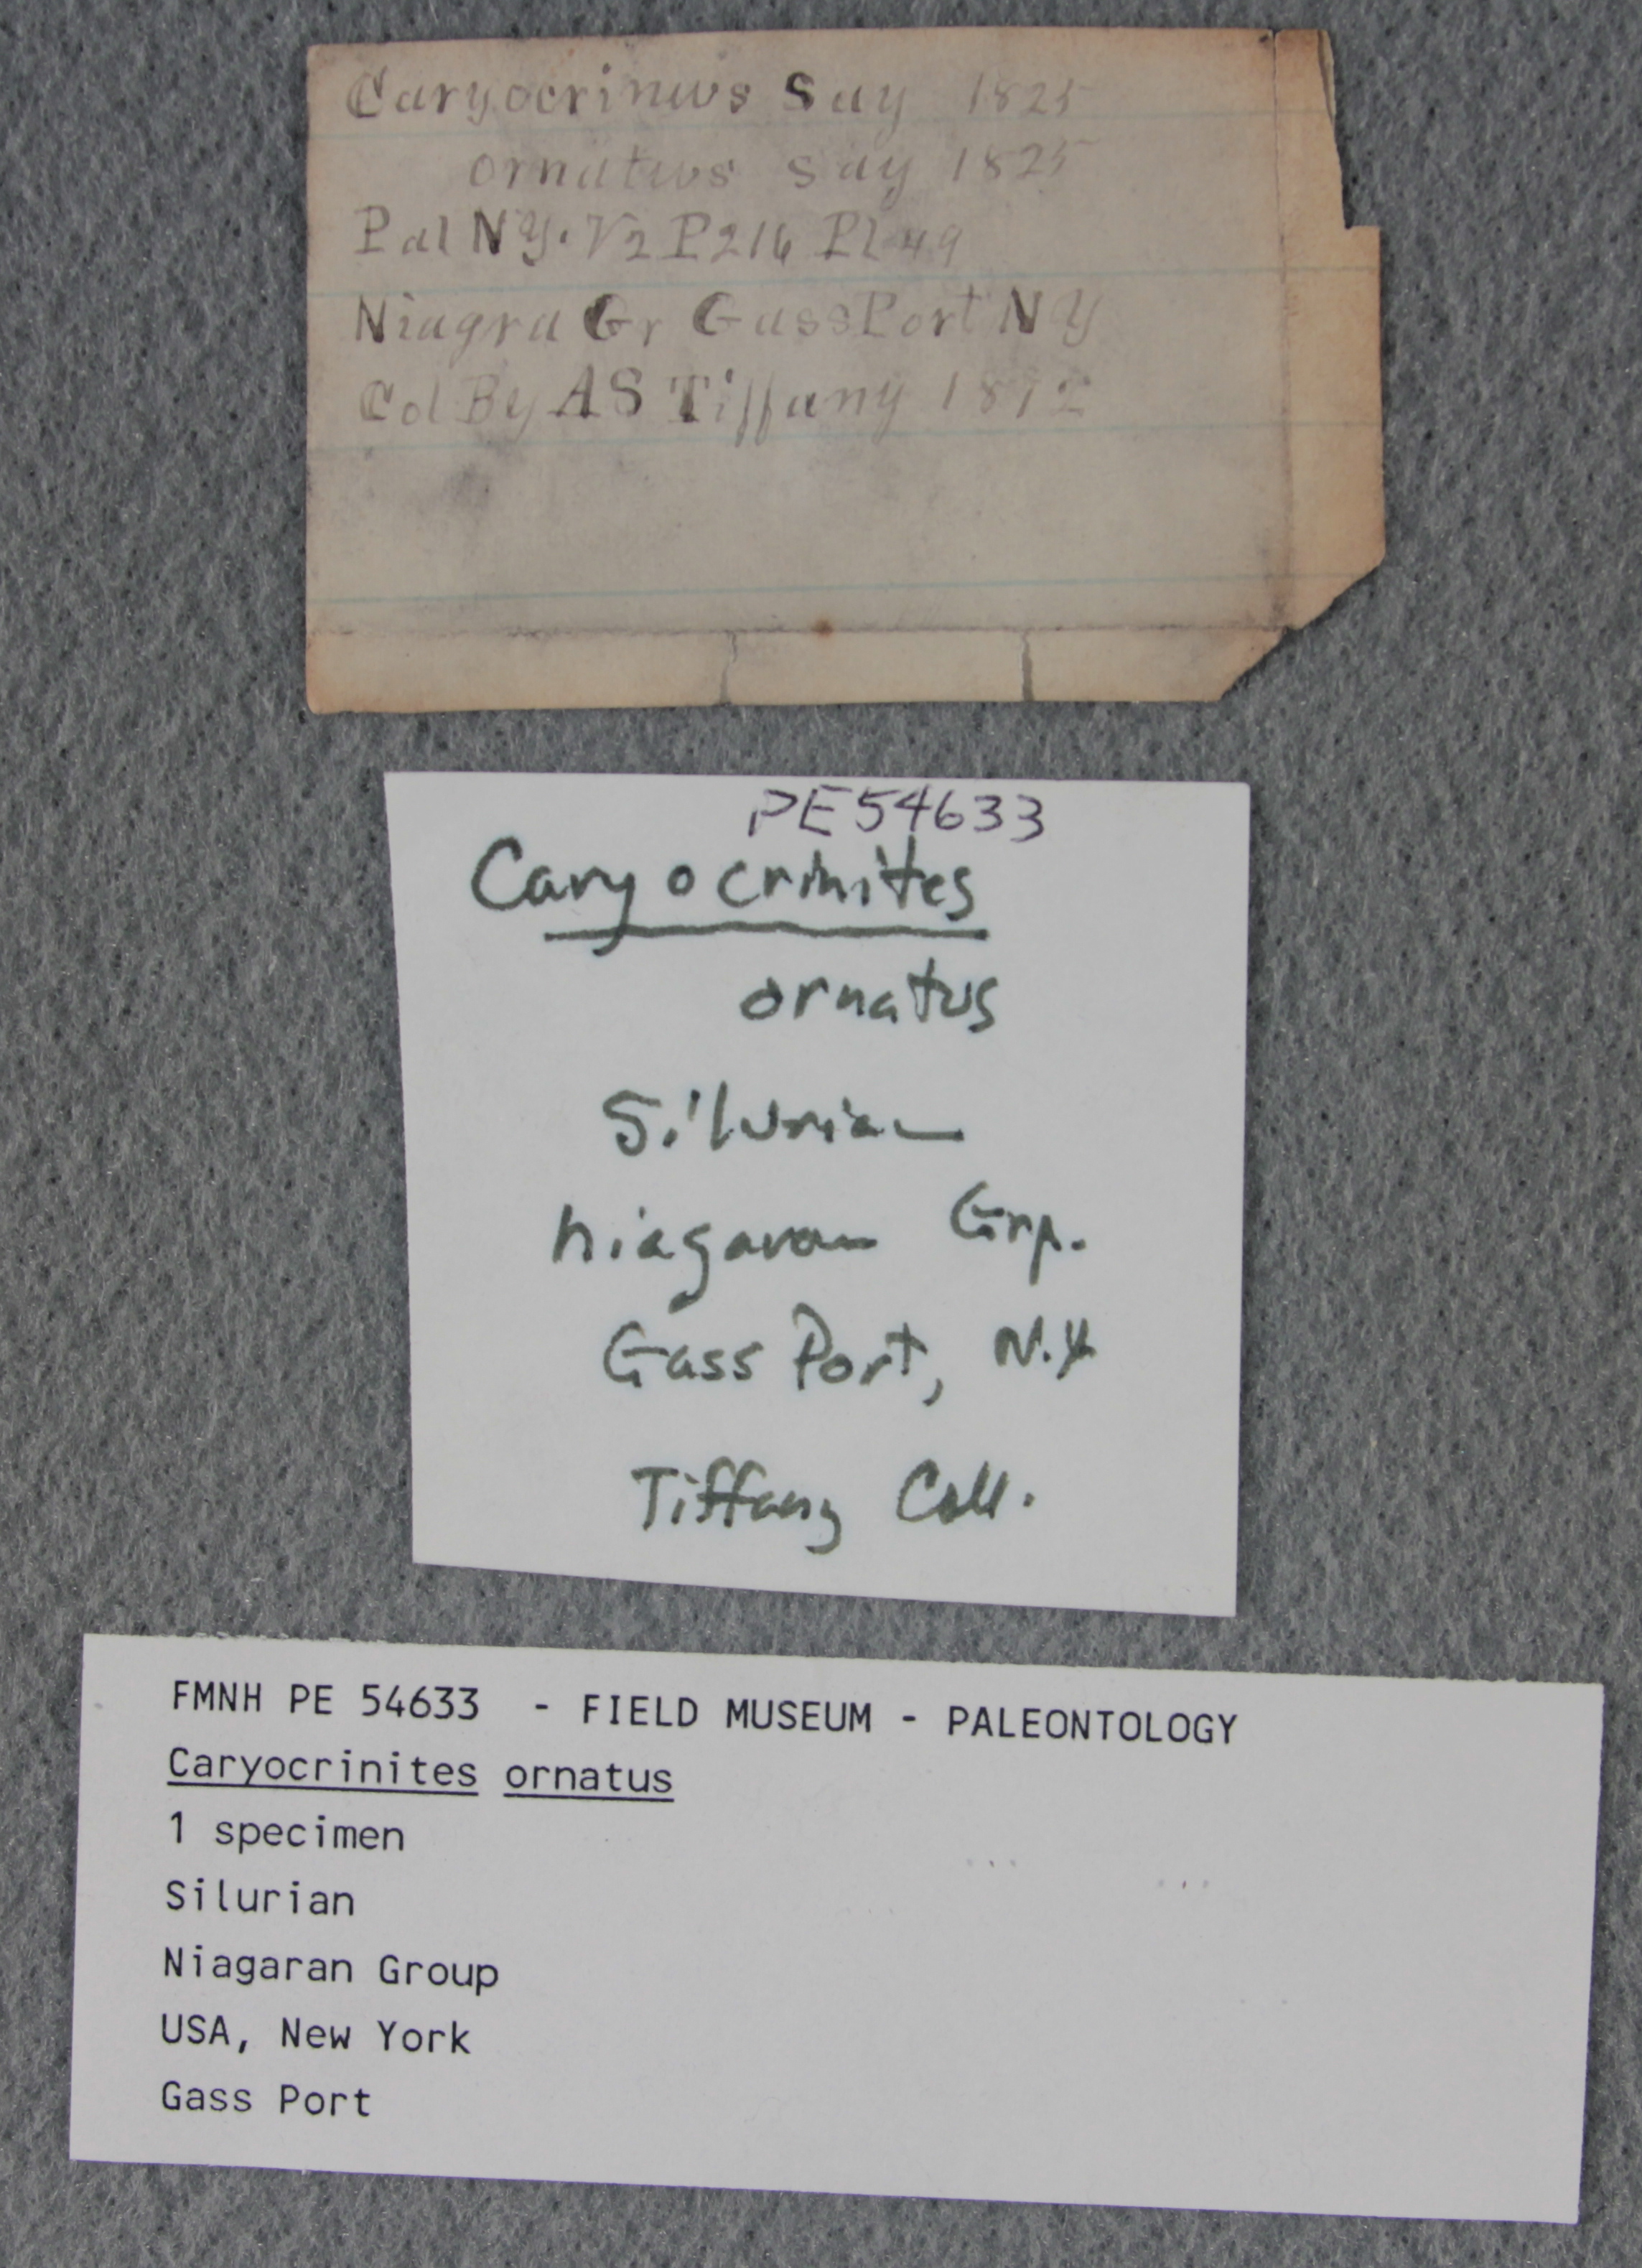 Caryocrinus Say 1825
ornatus Say 1825
Pal NY. V2 P216 Pl 49
Niagra Gr GassPort NY
Col By AS Tiffany
PE54633
Caryocrinites
ornatus
Silurian
Niagaran Grp.
Gass Port, N.Y.
Tiffany Coll.
FMNH PE 54633 - FIELD MUSEUM - PALEONTOLOGY
Caryocrinites ornatus
1 specimen
Silurian
Niagaran Group
USA, New York
Gass Port